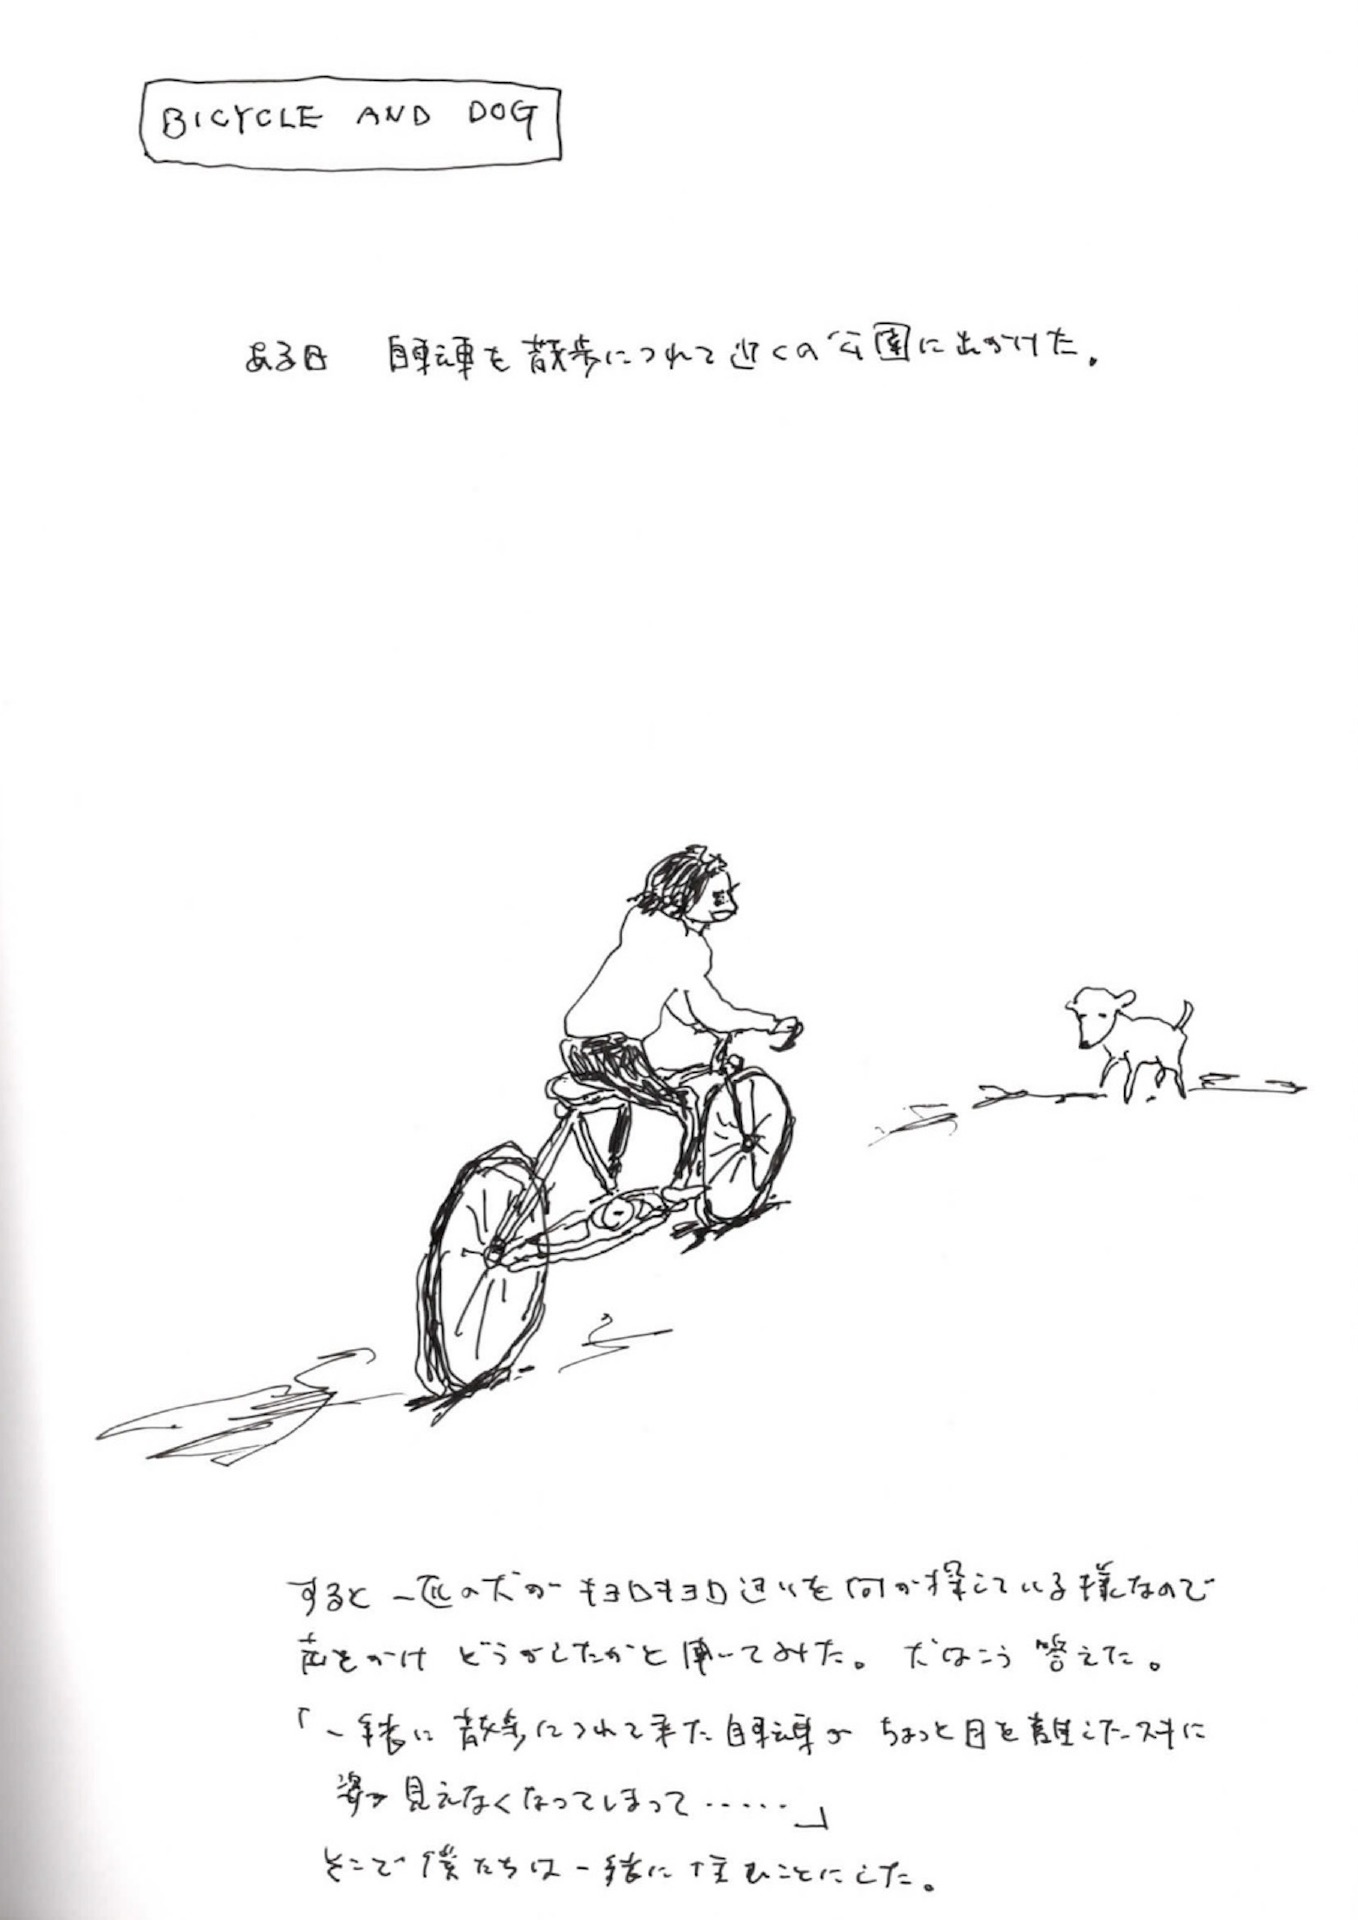 BICYCLE AND DOG
ある日　自転車を散歩につれて近くの公園に出かけた。
すると一匹の犬がキョロキョロ辺りを何か探している様なので
声をかけ どうかしたかと聞いてみた。 犬はこう答えた。
「一緒に散歩につれて来た自転車が ちょっと目を離したスキに
姿が見えなくなってしまって……」
そこで僕たちは一緒に住むことにした。